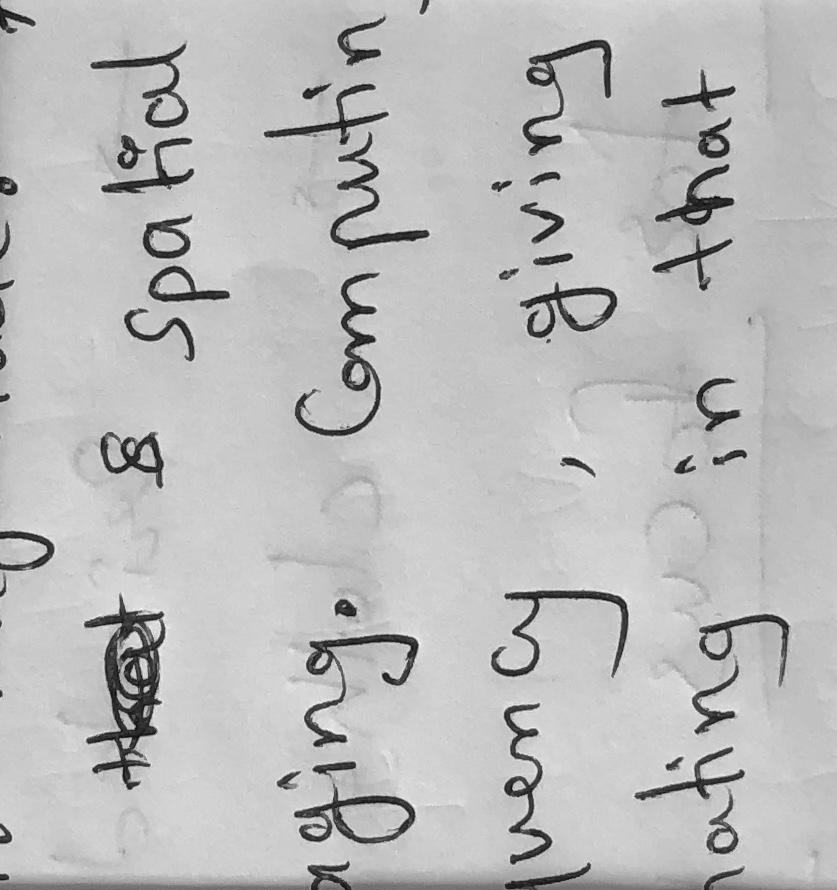 & spatial
aging. Computin
uency, giving
ating in that